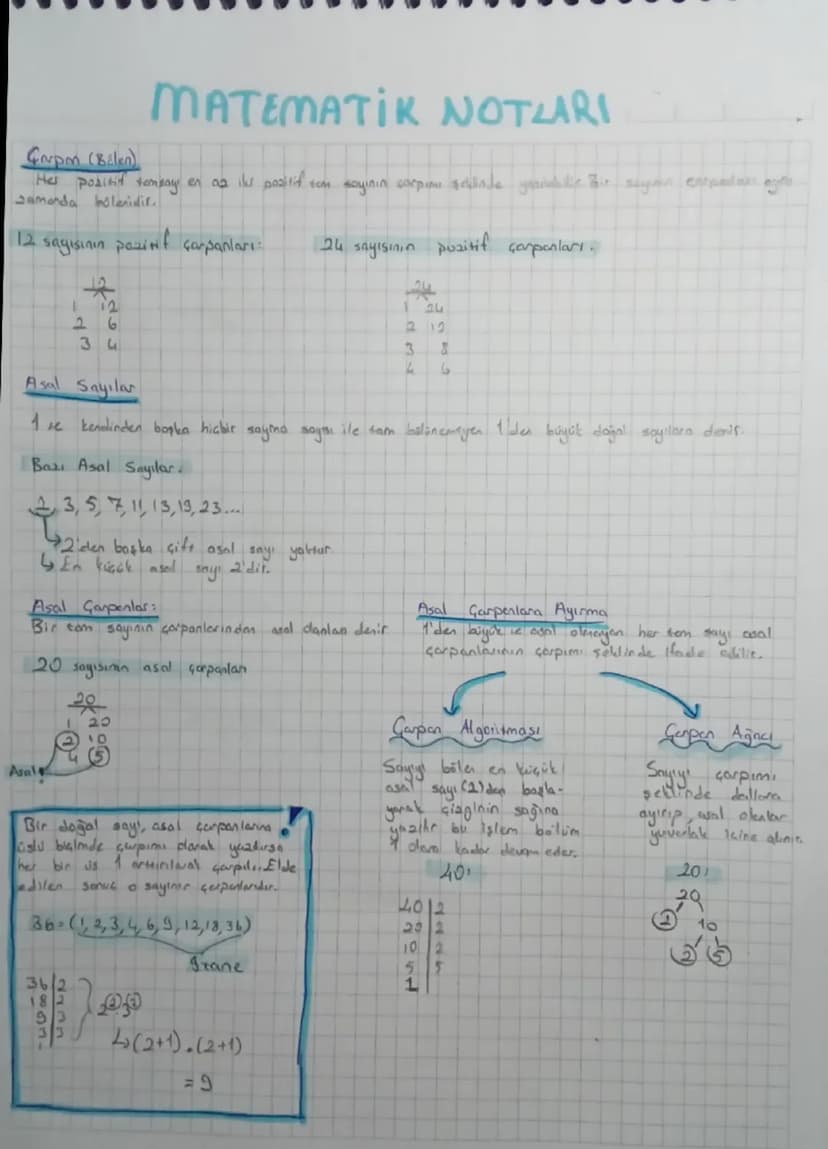 MATEMATİK NOTLARI
Çarpan (Bölen)
Her pozitif tamsayı en az iki pozitif tam sayının çarpımı şeklinde yazılabilir. Bir sayının çarpanları aynı
zamanda bölenidir.
12 sayısının pozitif çarpanları:
12
1 12
2 6
3 4
24 sayısının pozitif çarpanları.
24
1 24
2 12
3 8
4 6
Asal Sayılar
1 ve kendinden başka hiçbir sayma sayısı ile tam bölünemeyen 1'den büyük doğal sayılara denir.
Bazı Asal Sayılar.
2, 3, 5, 7, 11, 13, 19, 23...
↳ 2'den başka çift asal sayı yoktur
↳ En küçük asal sayı 2'dir.
Asal Çarpanlar:
Bir tam sayının çarpanlarından asal olanları denir
20 sayısının asal çarpanları
20
1 20
2 10
4 5
Asal
Asal Çarpanlara Ayırma
1'den büyük ve asal olmayan her tam sayı asal
çarpanlarının çarpımı şeklinde ifade edilir.
Çarpan Algoritması
Sayıyı bölen en küçük
asal sayı (2)'den başla-
yarak çizginin sağına
yazılır bu işlem bölüm
1 olana kadar devam eder.
40:
40 | 2
20 | 2
10 | 2
5 | 5
1
Çarpan Ağacı
Sayıyı çarpımı
şeklinde dallara
ayırıp, asal olanlar
yuvarlak içine alınır.
20:
20
2 10
2 5
Bir doğal sayı, asal çarpanlarına
üslü biçimde çarpımı olarak yazılırsa
her bir üs 1 artırılarak çarpılır. Elde
edilen sonuç o sayının çarpanlarıdır.
36=(1,2,3,4,6,9,12,18,36)
9 tane
36 | 2
18 | 2
9 | 3
3 | 3
1
2² 3²
↳ (2+1).(2+1)
= 9